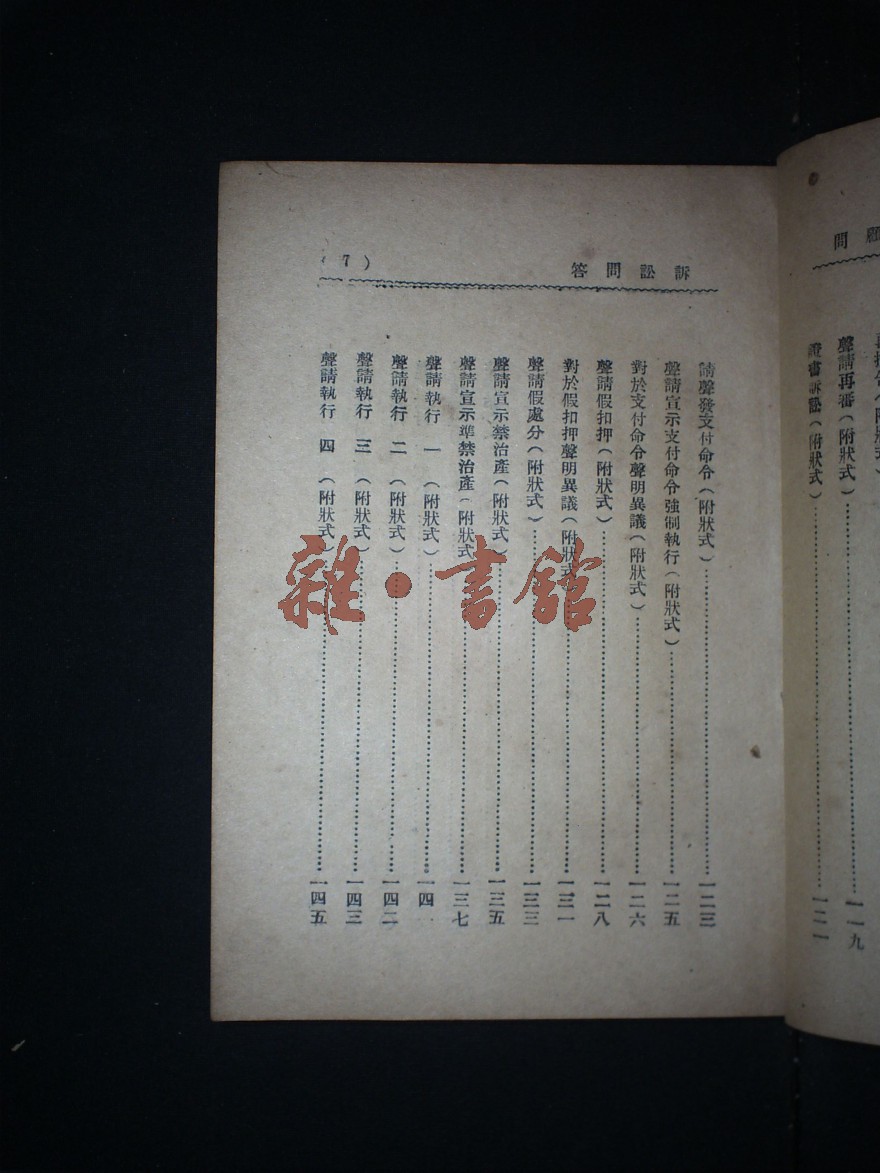 顧問
聲請再審（附狀式）……一一九
證書訴訟（附狀式）……一二一
訴訟問答
（7）
請聲發支付命令（附狀式）……一二三
聲請宣示支付命令強制執行（附狀式）……一二五
對於支付命令聲明異議（附狀式）……一二六
聲請假扣押（附狀式）……一二八
對於假扣押聲明異議（附狀式）……一三一
聲請假處分（附狀式）……一三三
聲請宣示禁治產（附狀式）……一三五
聲請宣示準禁治產（附狀式……一三七
聲請執行 一 （附狀式）……一四一
聲請執行 二 （附狀式）……一四二
聲請執行 三 （附狀式）……一四三
聲請執行 四 （附狀式）……一四五
雜·書館